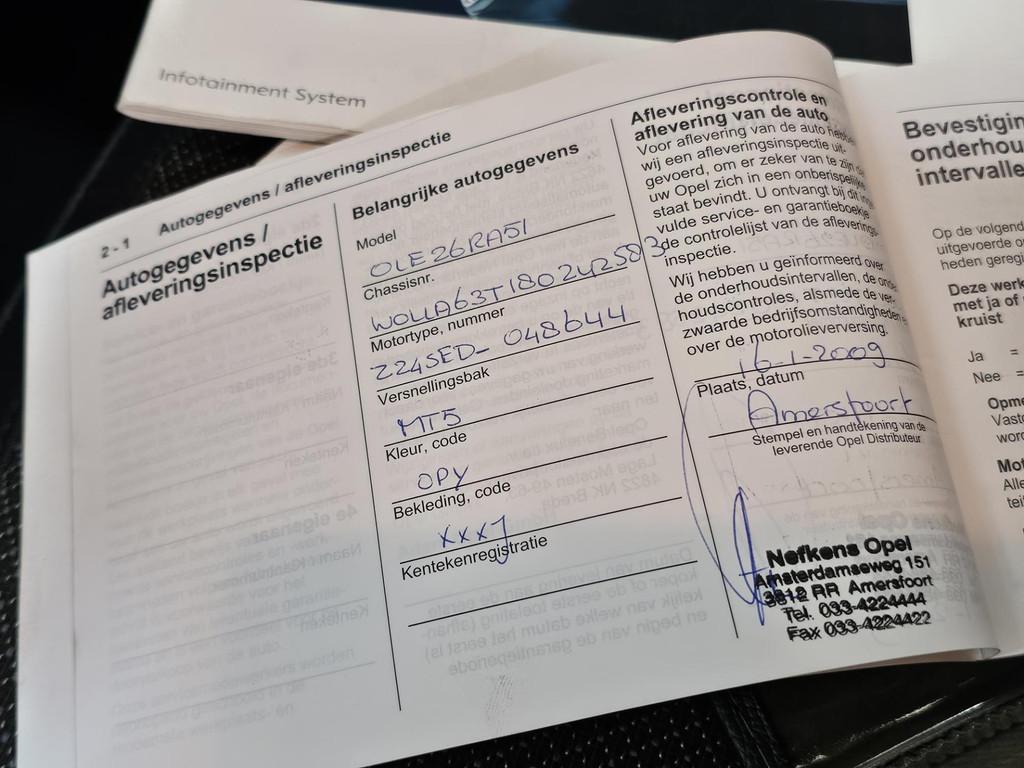 Infotainment System
2 - 1 Autogegevens / afleveringsinspectie
Autogegevens /
afleveringsinspectie
Belangrijke autogegevens
Model
OLE26RA51
Chassisnr.
Motortype, nummer
Z24SED- 048644
Versnellingsbak
MT5
Kleur, code
OPY
Bekleding, code
XXXJ
Kentekenregistratie
Afleveringscontrole en
aflevering van de auto
Voor aflevering van de auto
wij een afleveringsinspectie uit-
gevoerd, om er zeker van te zijn
uw Opel zich in een onberispelijke
staat bevindt. U ontvangt bij dit
vulde service- en garantieboekje
de controlelijst van de afleverings-
inspectie.
Wij hebben u geïnformeerd over
de onderhoudsintervallen, de
houdscontroles, alsmede de ver-
zwaarde bedrijfsomstandigheden
over de motorolieverversing.
16-1-2009
Plaats, datum
Amersfoort
Stempel en handtekening van de
leverende Opel Distributeur
Nefkens Opel
Amsterdamseweg 151
3812 RR Amersfoort
Tel. 033-4224444
Fax 033-4224422
Bevestigin
onderhou
intervalle
Op de volgend
uitgevoerde o
heden geregi
Deze werk
met ja of
kruist
Ja =
Nee =
Opme
Vast
word
Mot
Alle
teit